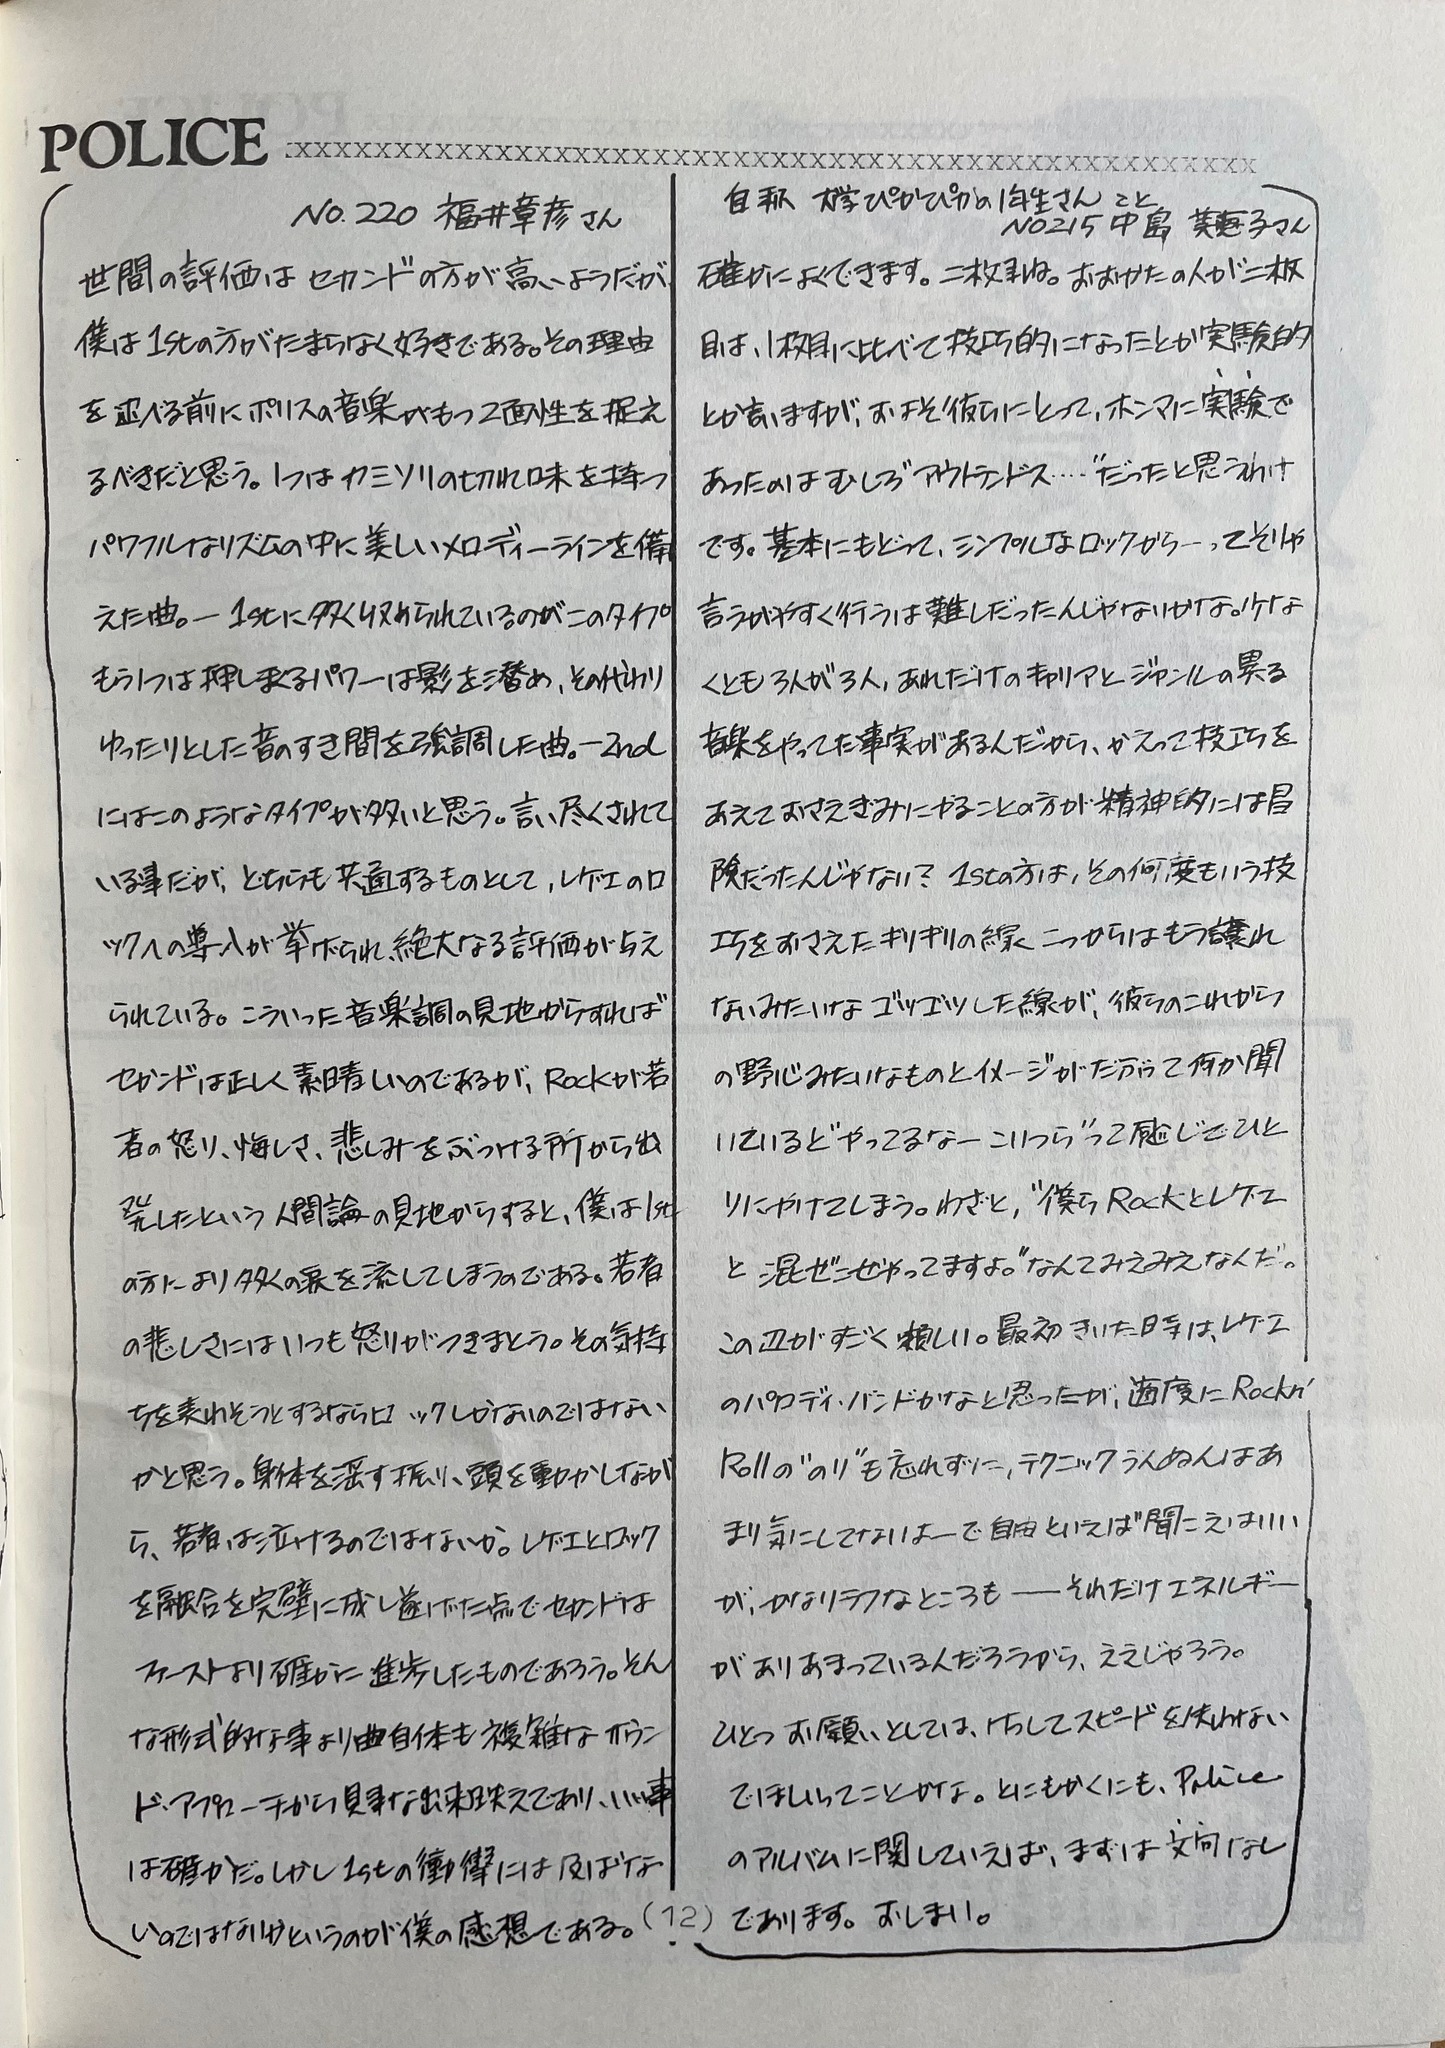 POLICE
No.220 福井章彦さん
世間の評価は セカンドの方が高いようだが、
僕は1stの方がたまらなく好きである。その理由
を述べる前にポリスの音楽がもつ2面性を捉え
るべきだと思う。1つはカミソリの切れ味を持つ
パワフルなリズムの中に美しいメロディーラインを備
えた曲。― 1stに多く収められているのがこのタイプ。
もう1つは押しまくるパワーは影を潜め、その代わり
ゆったりとした音のすき間を強調した曲。―2nd
にはこのようなタイプが多いと思う。言い尽くされて
いる事だが、どちらも共通するものとして、レゲエのロ
ックへの導入が挙げられ、絶大なる評価が与え
られている。こういった音楽調の見地からすれば
セカンドは正しく素晴しいのであるが、Rockが若
者の怒り、悔しさ、悲しみをぶつける所から出
発したという人間論の見地からすると、僕は1st
の方により多くの涙を流してしまうのである。若者
の悲しさにはいつも怒りがつきまとう。その気持
ちを表わそうとするならロックしかないのではない
かと思う。身体を揺す振り、頭を動かしなが
ら、若者は泣けるのではないか。レゲエとロック
を融合を完璧に成し遂げた点でセカンドは
ファーストより確かに進歩したものであろう。そん
な形式的な事より曲自体も複雑なサウン
ド・アプローチから見事な出来映えであり、いい事
は確かだ。しかし1stの衝撃には及ばな
いのではないかというのが僕の感想である。
自称 大学ぴかぴかの1年生さん こと
NO215 中島 美穂子さん
確かによくできます。二枚目ね。おおかたの人が二枚
目は、1枚目に比べて技巧的になったとか実験的
とか言いますが、およそ彼らにとって、ホンマに実験で
あったのはむしろ“アウトランドス‥‥”だったと思うわけ
です。基本にもどって、シンプルなロックから―ってそりゃ
言うがやすく行うは難しだったんじゃないかな。少な
くとも3人が3人、あれだけのキャリアとジャンルの異る
音楽をやってた事実があるんだから、かえって技巧を
あえておさえぎみにやることの方が精神的には冒
険だったんじゃない？ 1stの方は、その何度もいう技
巧をおさえたギリギリの線 こっからはもう譲れ
ないみたいな ゴツゴツした線が、彼らのこれから
の野心みたいなものとイメージがだぶって何か聞
いていると“やってるなーこいつら”って感じでひと
りにやけてしまう。わざと、“僕らRockとレゲエ
と混ぜこぜやってますよ。”なんてみえみえなんだ。
この辺がすごく頼しい。最初きいた時は、レゲエ
のパロディ・バンドかなと思ったが、適度にRock n'
Rollの“のり”も忘れずに、テクニックうんぬんはあ
まり気にしてないは―で自由といえば聞こえはいい
が、かなりラフなところも ―― それだけエネルギー
がありあまっているんだろうから、ええじゃろう。
ひとつお願いとしては、けっしてスピードを失わない
でほしいってことかな。とにもかくにも、Police
のアルバムに関していえば、まずは文句なし
であります。おしまい。
(12)